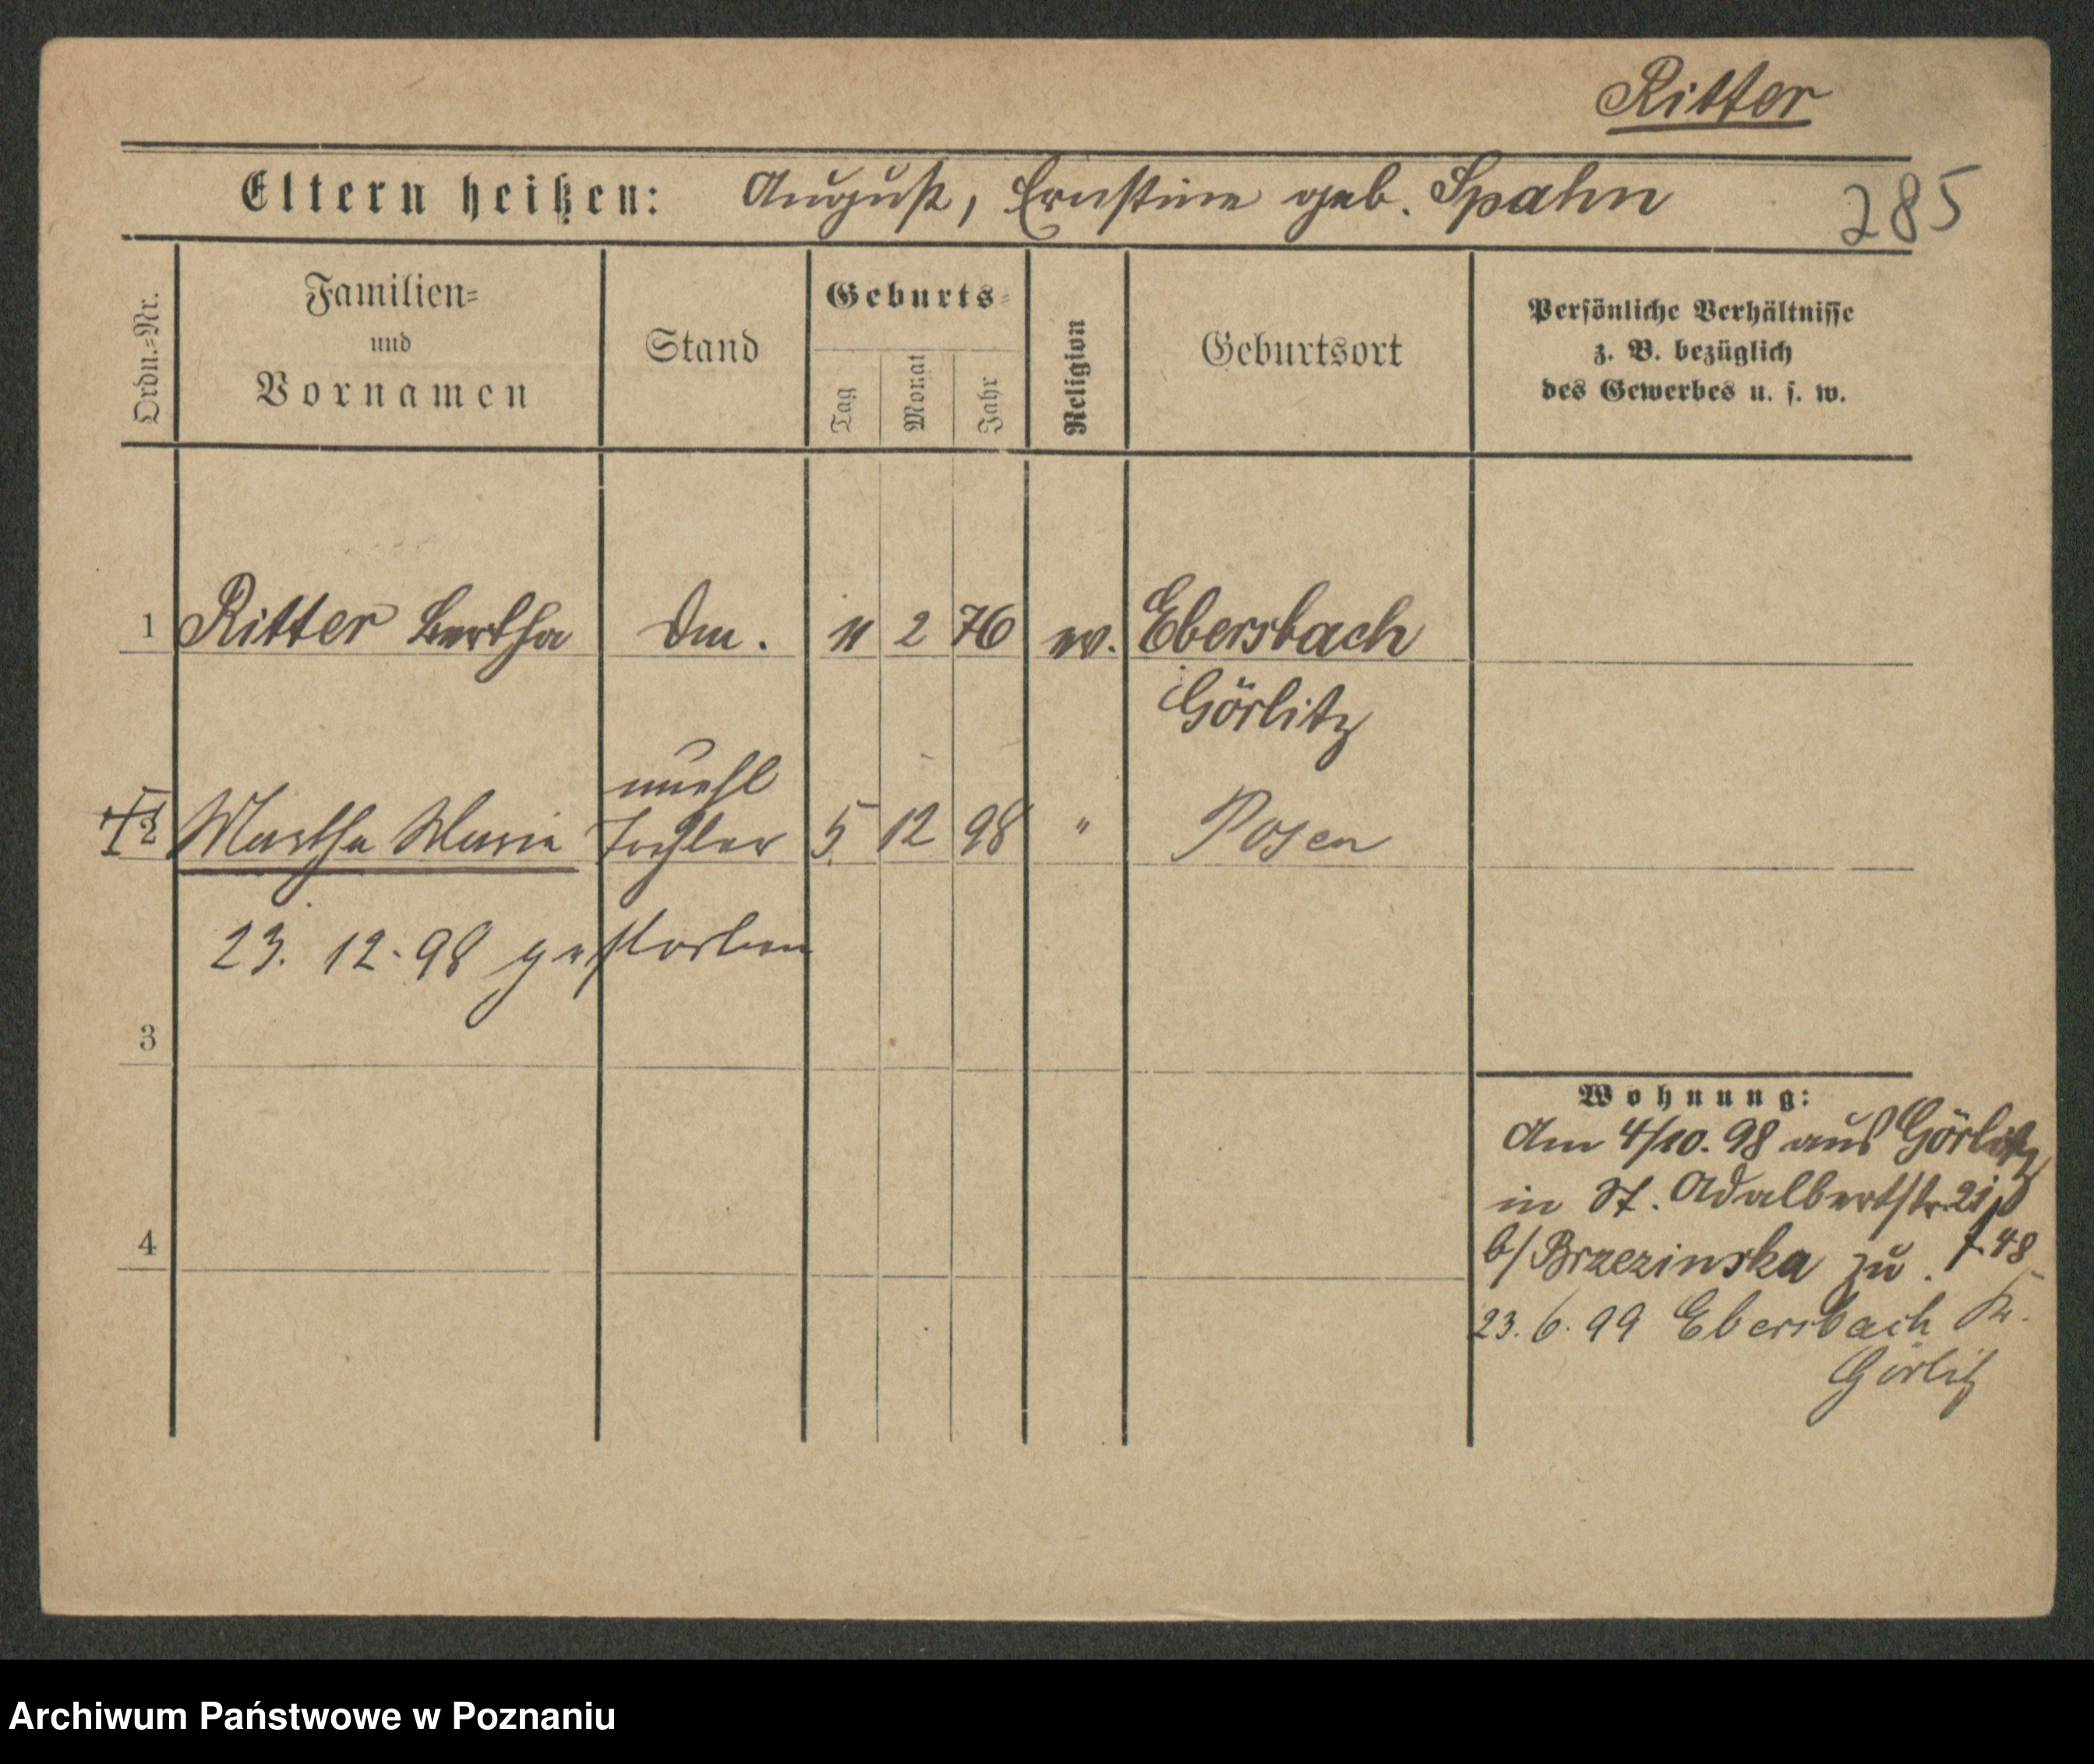 Ritter
Eltern heißen: August, Ernstine geb. Spahn
285
Ordn.-Nr.
Familien- und Vornamen
Stand
Geburts-
Tag
Monat
Jahr
Religion
Geburtsort
Persönliche Verhältnisse
z. B. bezüglich
des Gewerbes u. s. w.
1 Ritter Bertha 11 2 76 ev. Ebersbach
Görlitz
unehl
2 Martha Marie Tochter 5 12 98 " Posen
23. 12. 98 gestorben
3
Wohnung:
Am 4/10. 98 aus Görlitz
in St. Adalbertstr. 21
4
b/ Brzezinska zu.
23. 6. 99 Ebersbach Kr.
Görlitz
Archiwum Państwowe w Poznaniu